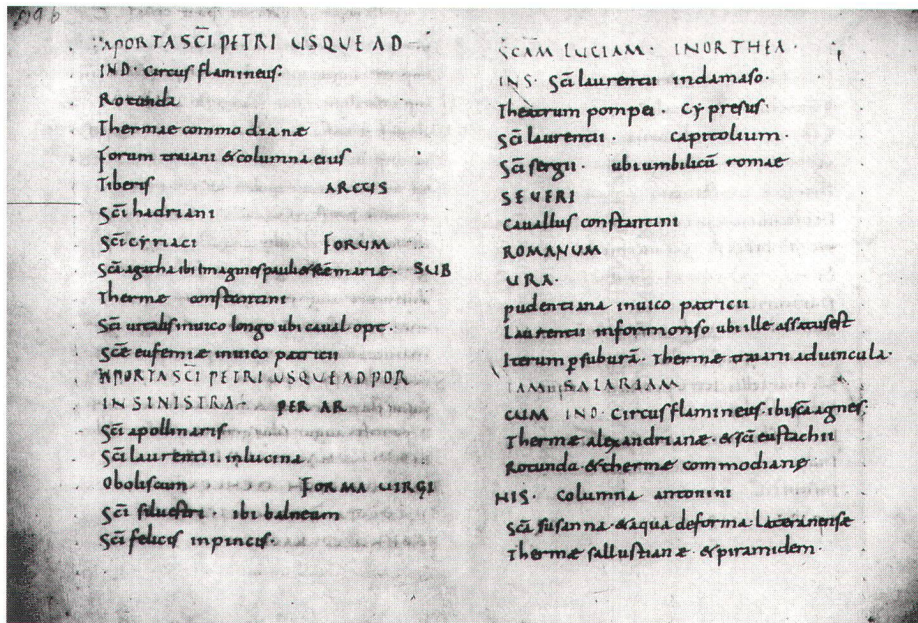 APORTA SC̄I PETRI USQUE AD
IND · Circus flamineus.
Rotunda
Thermae commodianæ
Forum traiani & columna eius
Tiberis ARCUS
Sc̄i hadriani
Sc̄i cyriaci FORUM
Sc̄a agatha ibi imagines pauli & sc̄e marie SUB
Thermę constantini
Sc̄i uitalis inuico longo ubi caual opt·
Sc̄e eufemiæ inuico patricii
APORTA SC̄I PETRI USQUE AD POR
IN SINISTRA PER AR
Sc̄i apollinaris
Sc̄i laurentii inlucina
Oboliscum FORMA UIRGI
Sc̄i siluestri ibi balneum
Sc̄i felicis inpincis·
SC̄AM LUCIAM · INORTHEA ·
INS · Sc̄i laurentii indamaso·
Theatrum pompei Cypresus·
Sc̄i laurentii· capitolium
Sc̄i sergii· ubi umbilicū romae
SEUERI
Cauallus constantini
ROMANUM
URA ·
pudentiana inuico patricii
Laurentii informonso ubi ille assatus est
Iterum p suburā· Thermę traiani aduincula·
TAM SALARIAM
CUM IND· Circus flamineus· ibi sc̄a agnes·
Thermæ alexandrianæ & sc̄i eustachii
Rotunda & thermę commodianę
NIS · columna antonini
Sc̄a susanna & aqua deforma lateranense
Thermæ sallustianæ & piramidem·